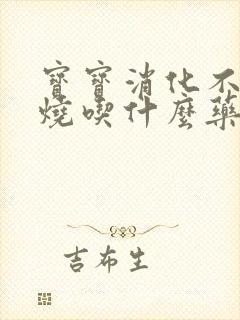 寶寶消化不
燒喫什麼藥
吉布生